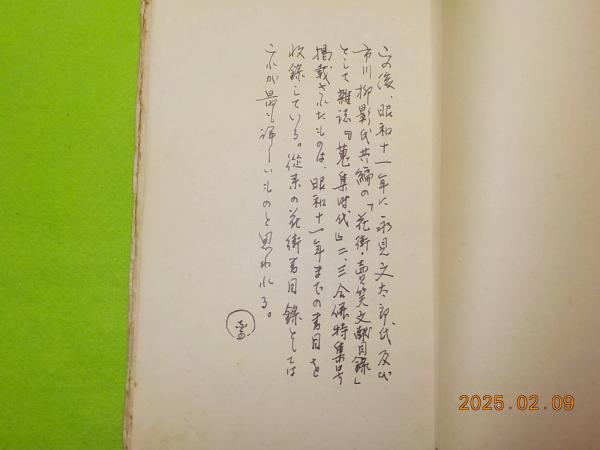 この後、昭和十一年に永見文太郎氏及び
市川柳影氏共編の「花街・売笑文献目録」
として雑誌『蒐集時代』二、三合併特集号
掲載されたものは、昭和十一年までの書目を
収録している。従来の花街書目録としては
これが最も詳しいものと思われる。
2025.02.09